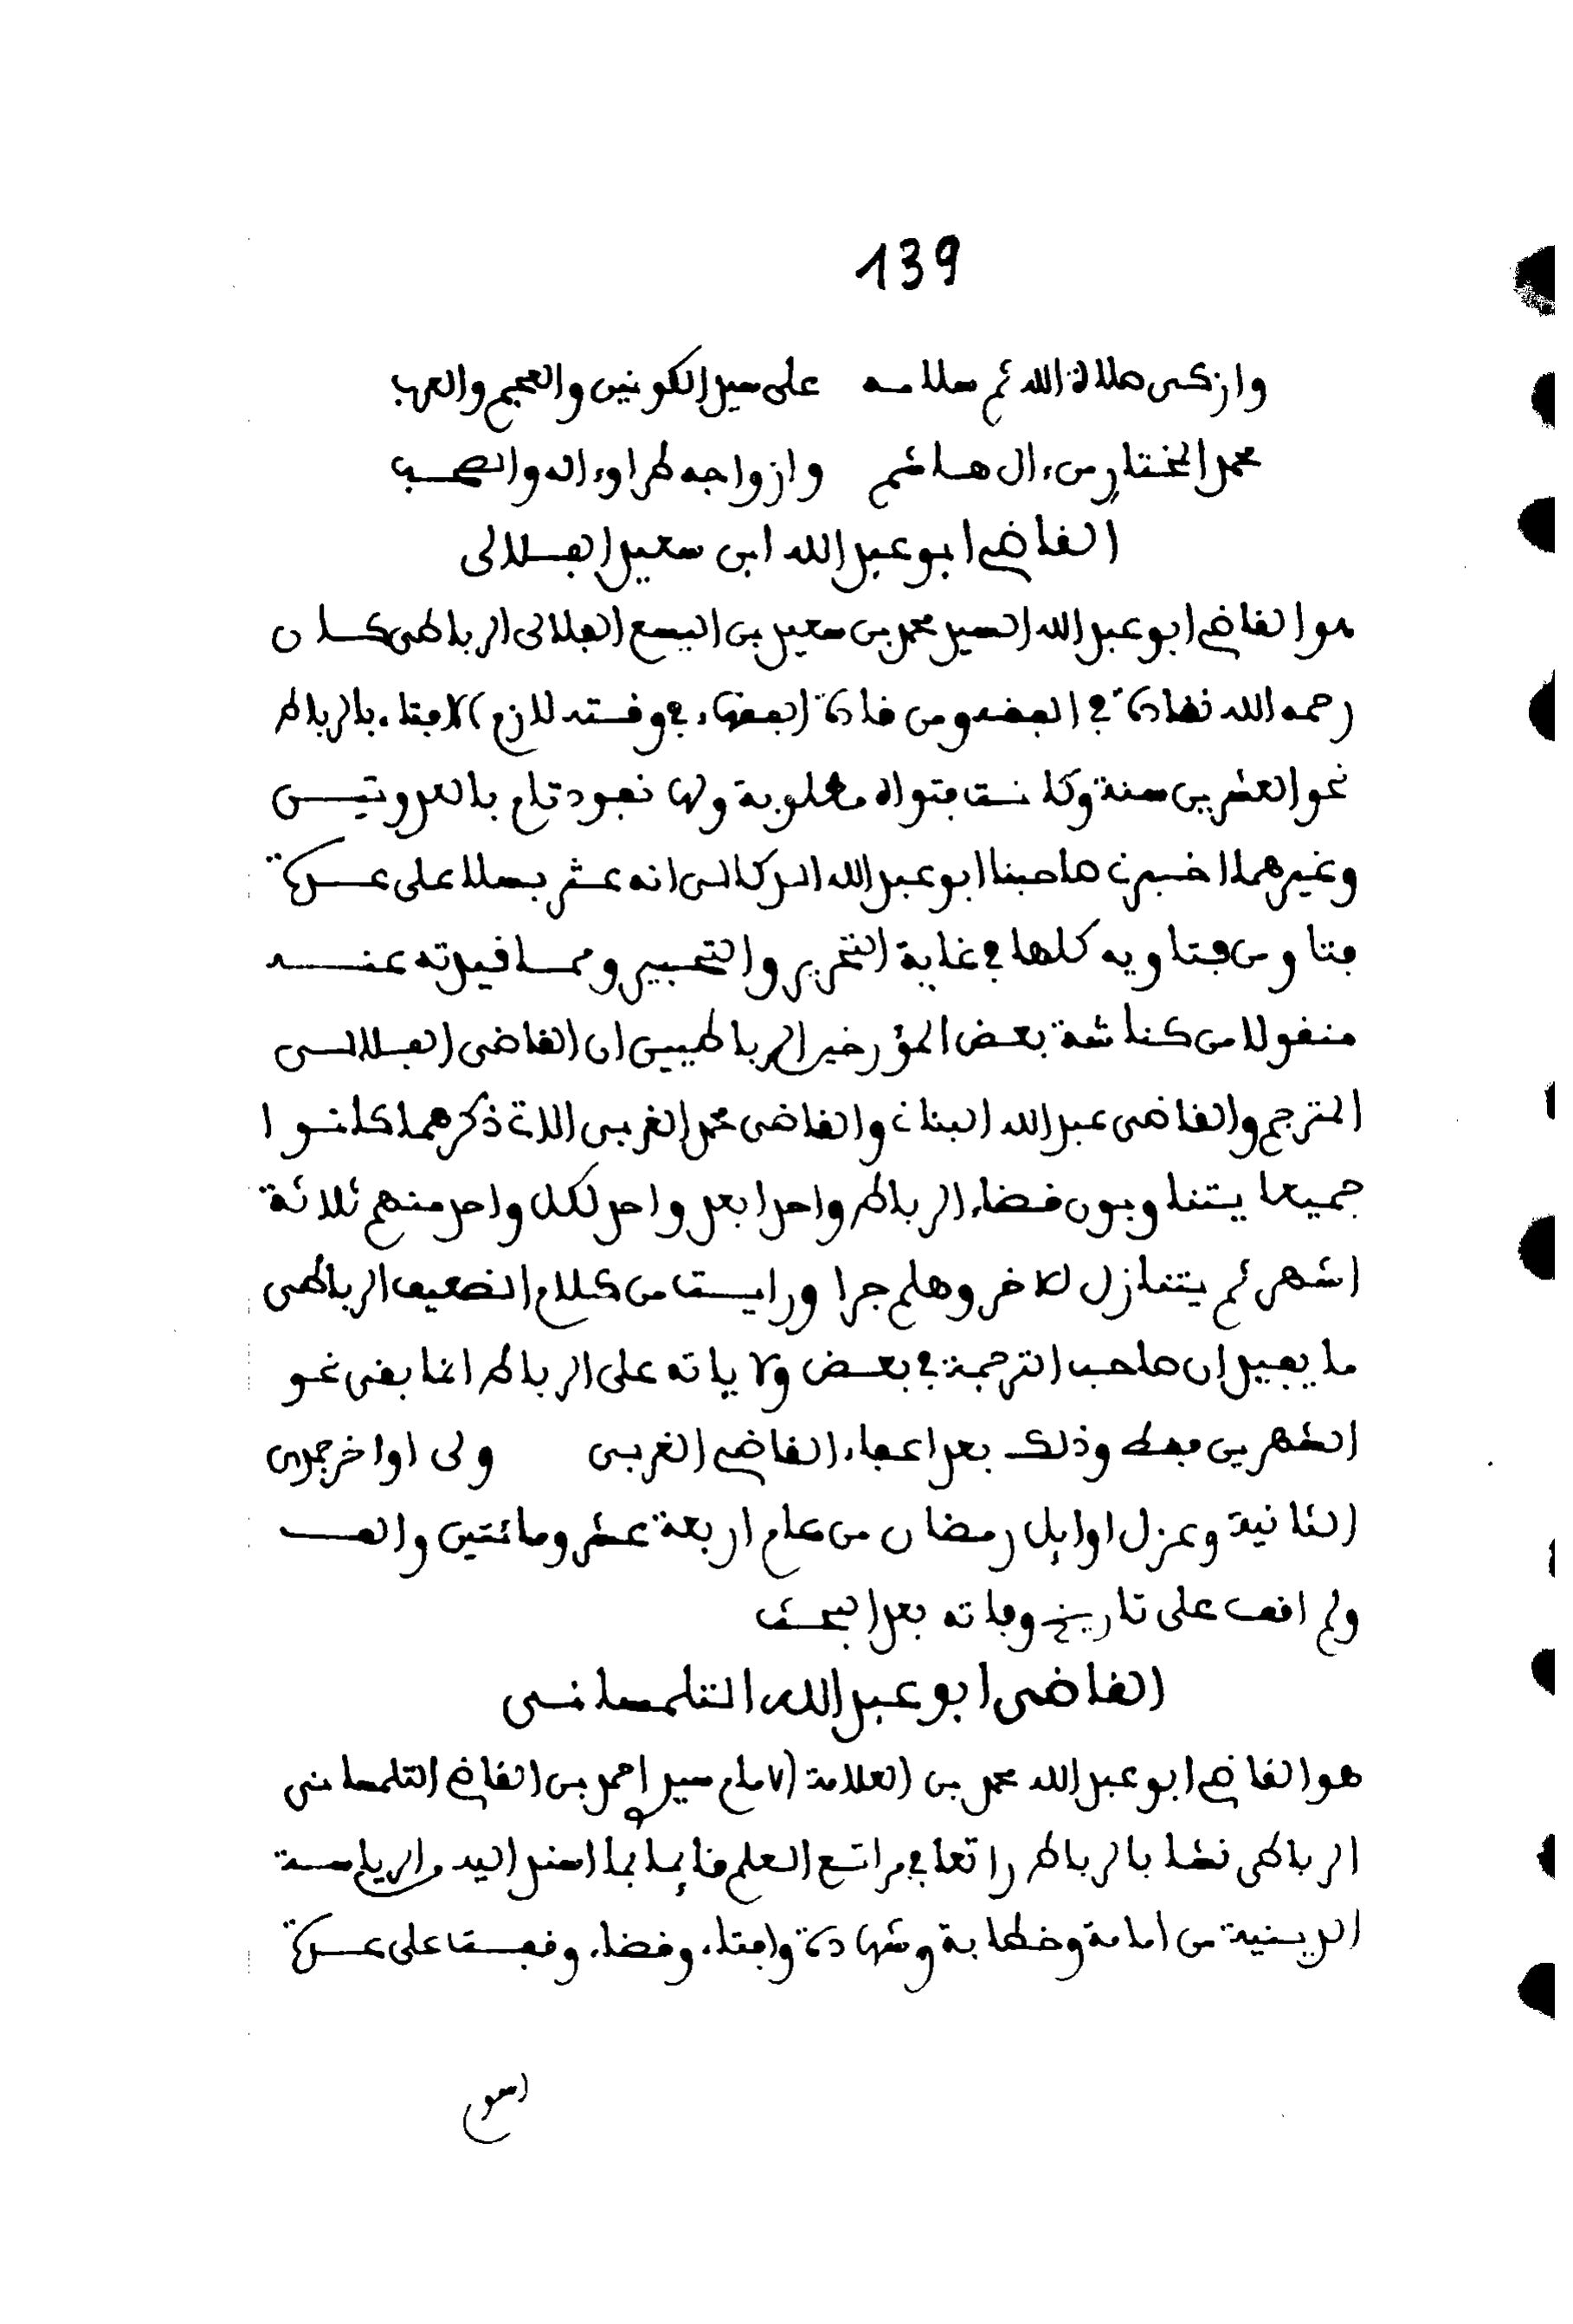 139
وازكى صلاة الله ثم سلامه على سيد الكونين والعجم والعرب
محمد المختار من ءال هاشم وازواجه طرا وءاله والصحب
القاضي ابو عبد الله ابن سعيد الفلالي
هو القاضي ابو عبد الله السيد محمد بن سعيد بن اليسع الفلالي الرباطي كان
رحمه الله نقادة في الفقه ومن قادة الفقهاء في وقته لازم الافتاء بالرباط
نحو العشرين سنة وكانت فتواه مطلوبة ولها نفوذ تام بالعدوتين
وغيرهما اخبرني صاحبنا ابو عبد الله الدكالي انه عثر بسلا على عدة
فتاو من فتاويه كلها في غاية التحرير والتحبير ومما قيدته عنه
منقولا من كناشة بعض المؤرخين الرباطيين ان القاضي الفلالي
المترجم والقاضي عبد الله البناني والقاضي محمد الغربي الاتي ذكرهما كانوا
جميعا يتناوبون قضاء الرباط واحدا بعد واحد لكل واحد منهم ثلاثة
اشهر ثم يتنازل للاخر وهلم جرا ورايت من كلام الضعيف الرباطي
ما يفيد ان صاحب الترجمة في بعض ولاياته على الرباط انما بقي نحو
الشهرين فقط وذلك بعد اعفاء القاضي الغربي ولي اواخر جمدى
الثانية وعزل اوايل رمضان من عام اربعة عشر ومائتين والف
ولم اقف على تاريخ وفاته بعد البحث
القاضي ابو عبد الله التلمساني
هو القاضي ابو عبد الله محمد بن العلامة الامام سيد احمد بن القاضي التلمساني
الرباطي نشا بالرباط راتعا في مراتع العلم قايما بما اسند اليه والرياسة
الدينية من امامة وخطابة وشهادة وافتاء وقضاء وقفت على عدة